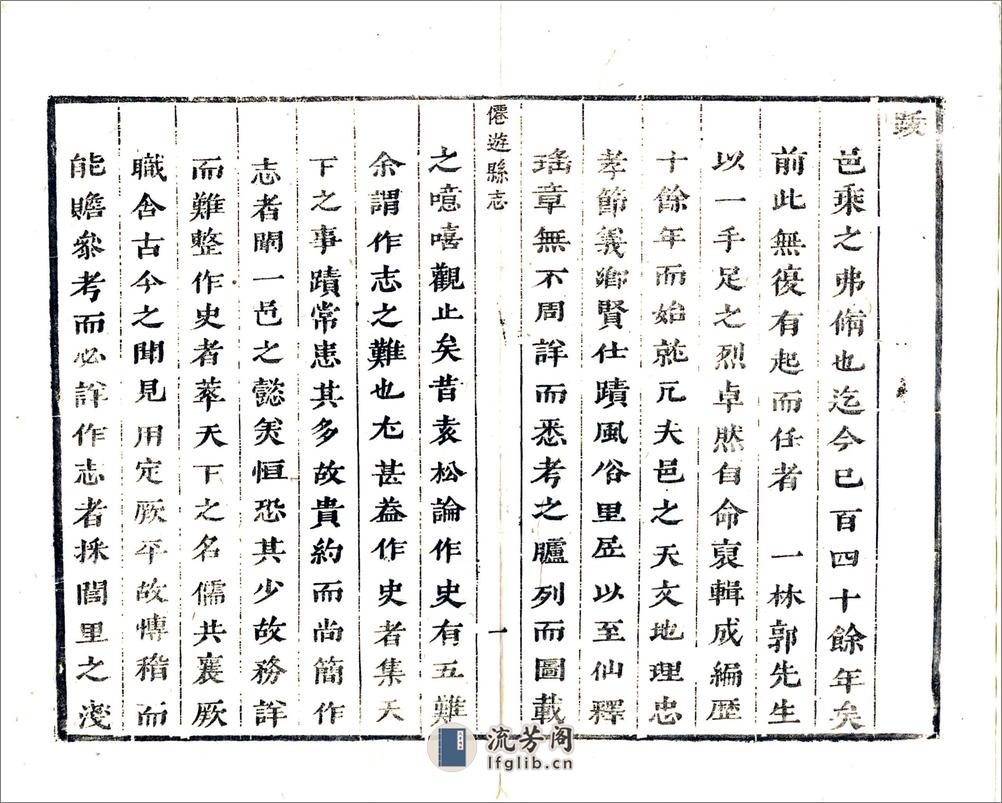 跋
邑乘之弗脩也迄今已百四十餘年矣
前此無復有起而任者　一林郭先生
以一手足之烈卓然自命裒輯成編歷
十餘年而始就凡夫邑之天文地理忠
孝節義鄉賢仕蹟風俗里居以至仙釋
瑤章無不周詳而悉考之臚列而圖載
僊遊縣志
一
之噫嘻觀止矣昔袁松論作史有五難
余謂作志之難也尤甚葢作史者集天
下之事蹟常患其多故貴約而尚簡作
志者闡一邑之懿美恒恐其少故務詳
而難整作史者萃天下之名儒共襄厥
職舍古今之聞見用定厥平故慱稽而
能贍叅考而必詳作志者採閭里之淺
流芳阁
lfglib.cn